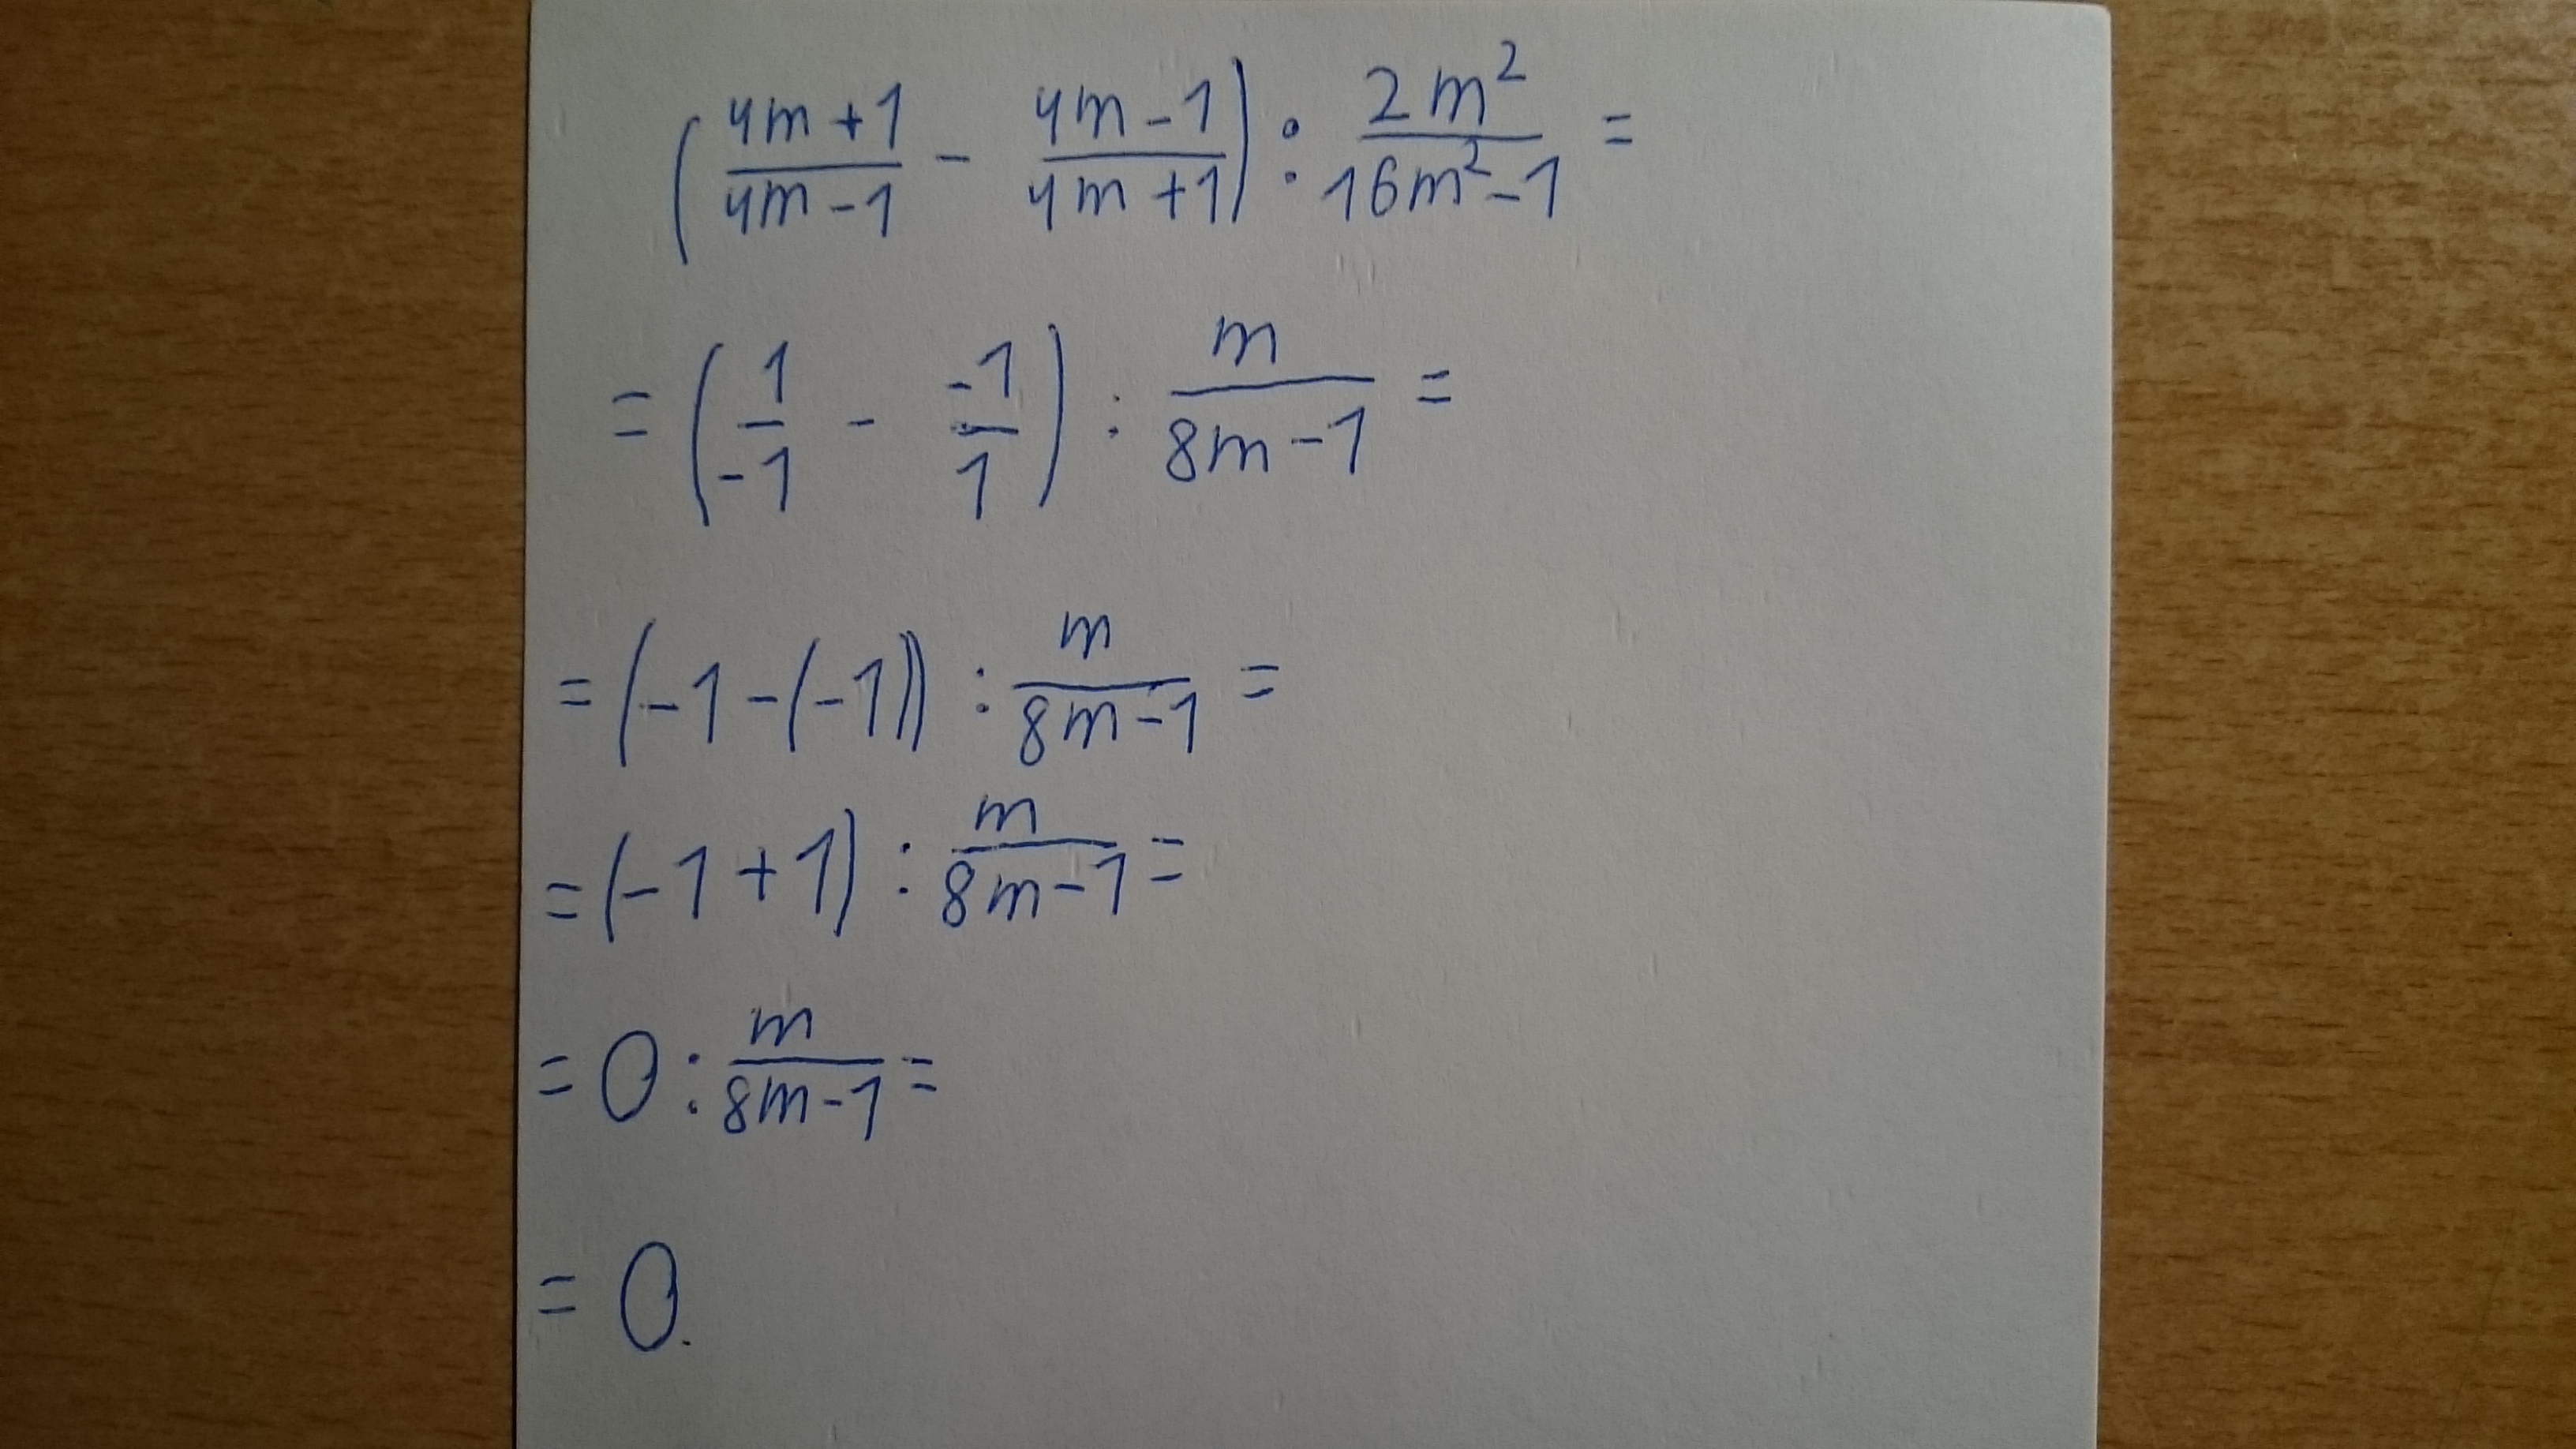 (4m+1/4m-1 - 4m-1/4m+1) : 2m²/16m²-1 =
= (1/-1 - -1/1) : m/8m-1 =
= (-1-(-1)) : m/8m-1 =
= (-1+1) : m/8m-1 =
= 0 : m/8m-1 =
= 0.